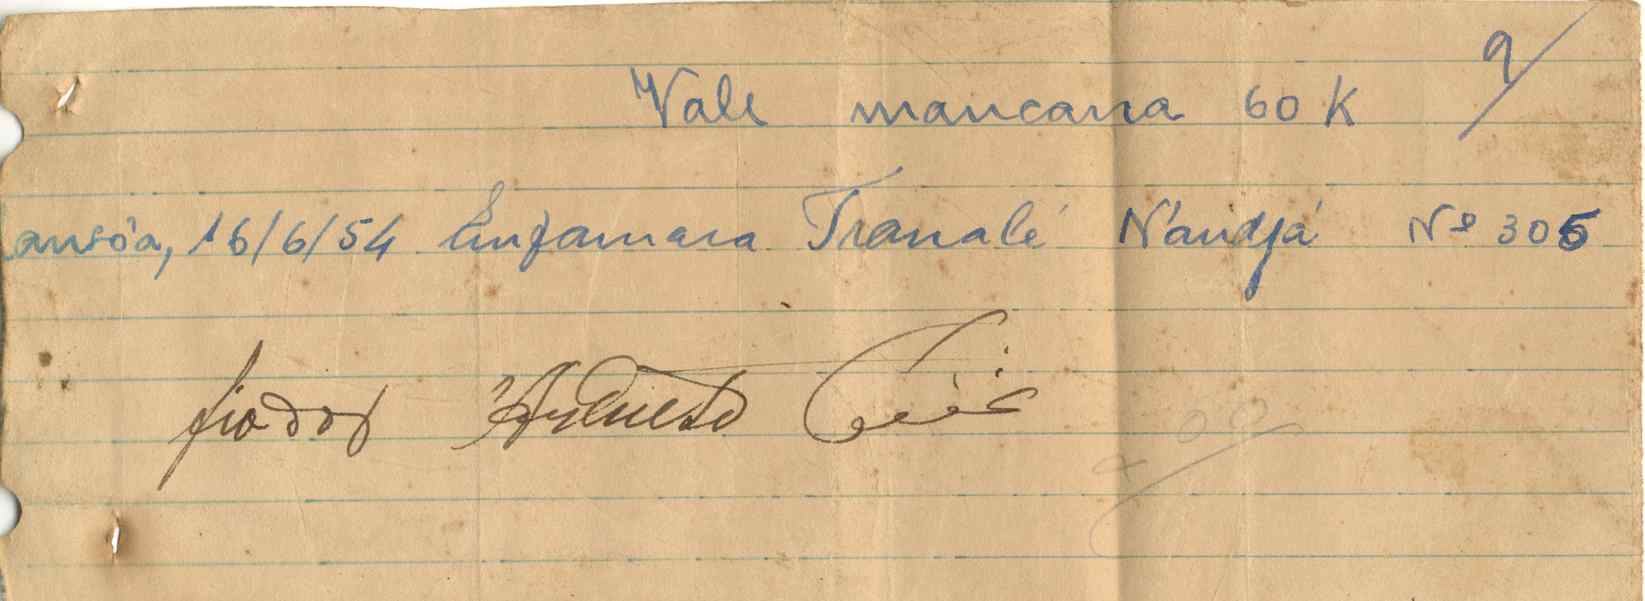 Vale mancarra 60 K 9/
ansôa, 16/6/54 Enfamara N'andjá Nº 305
fiador